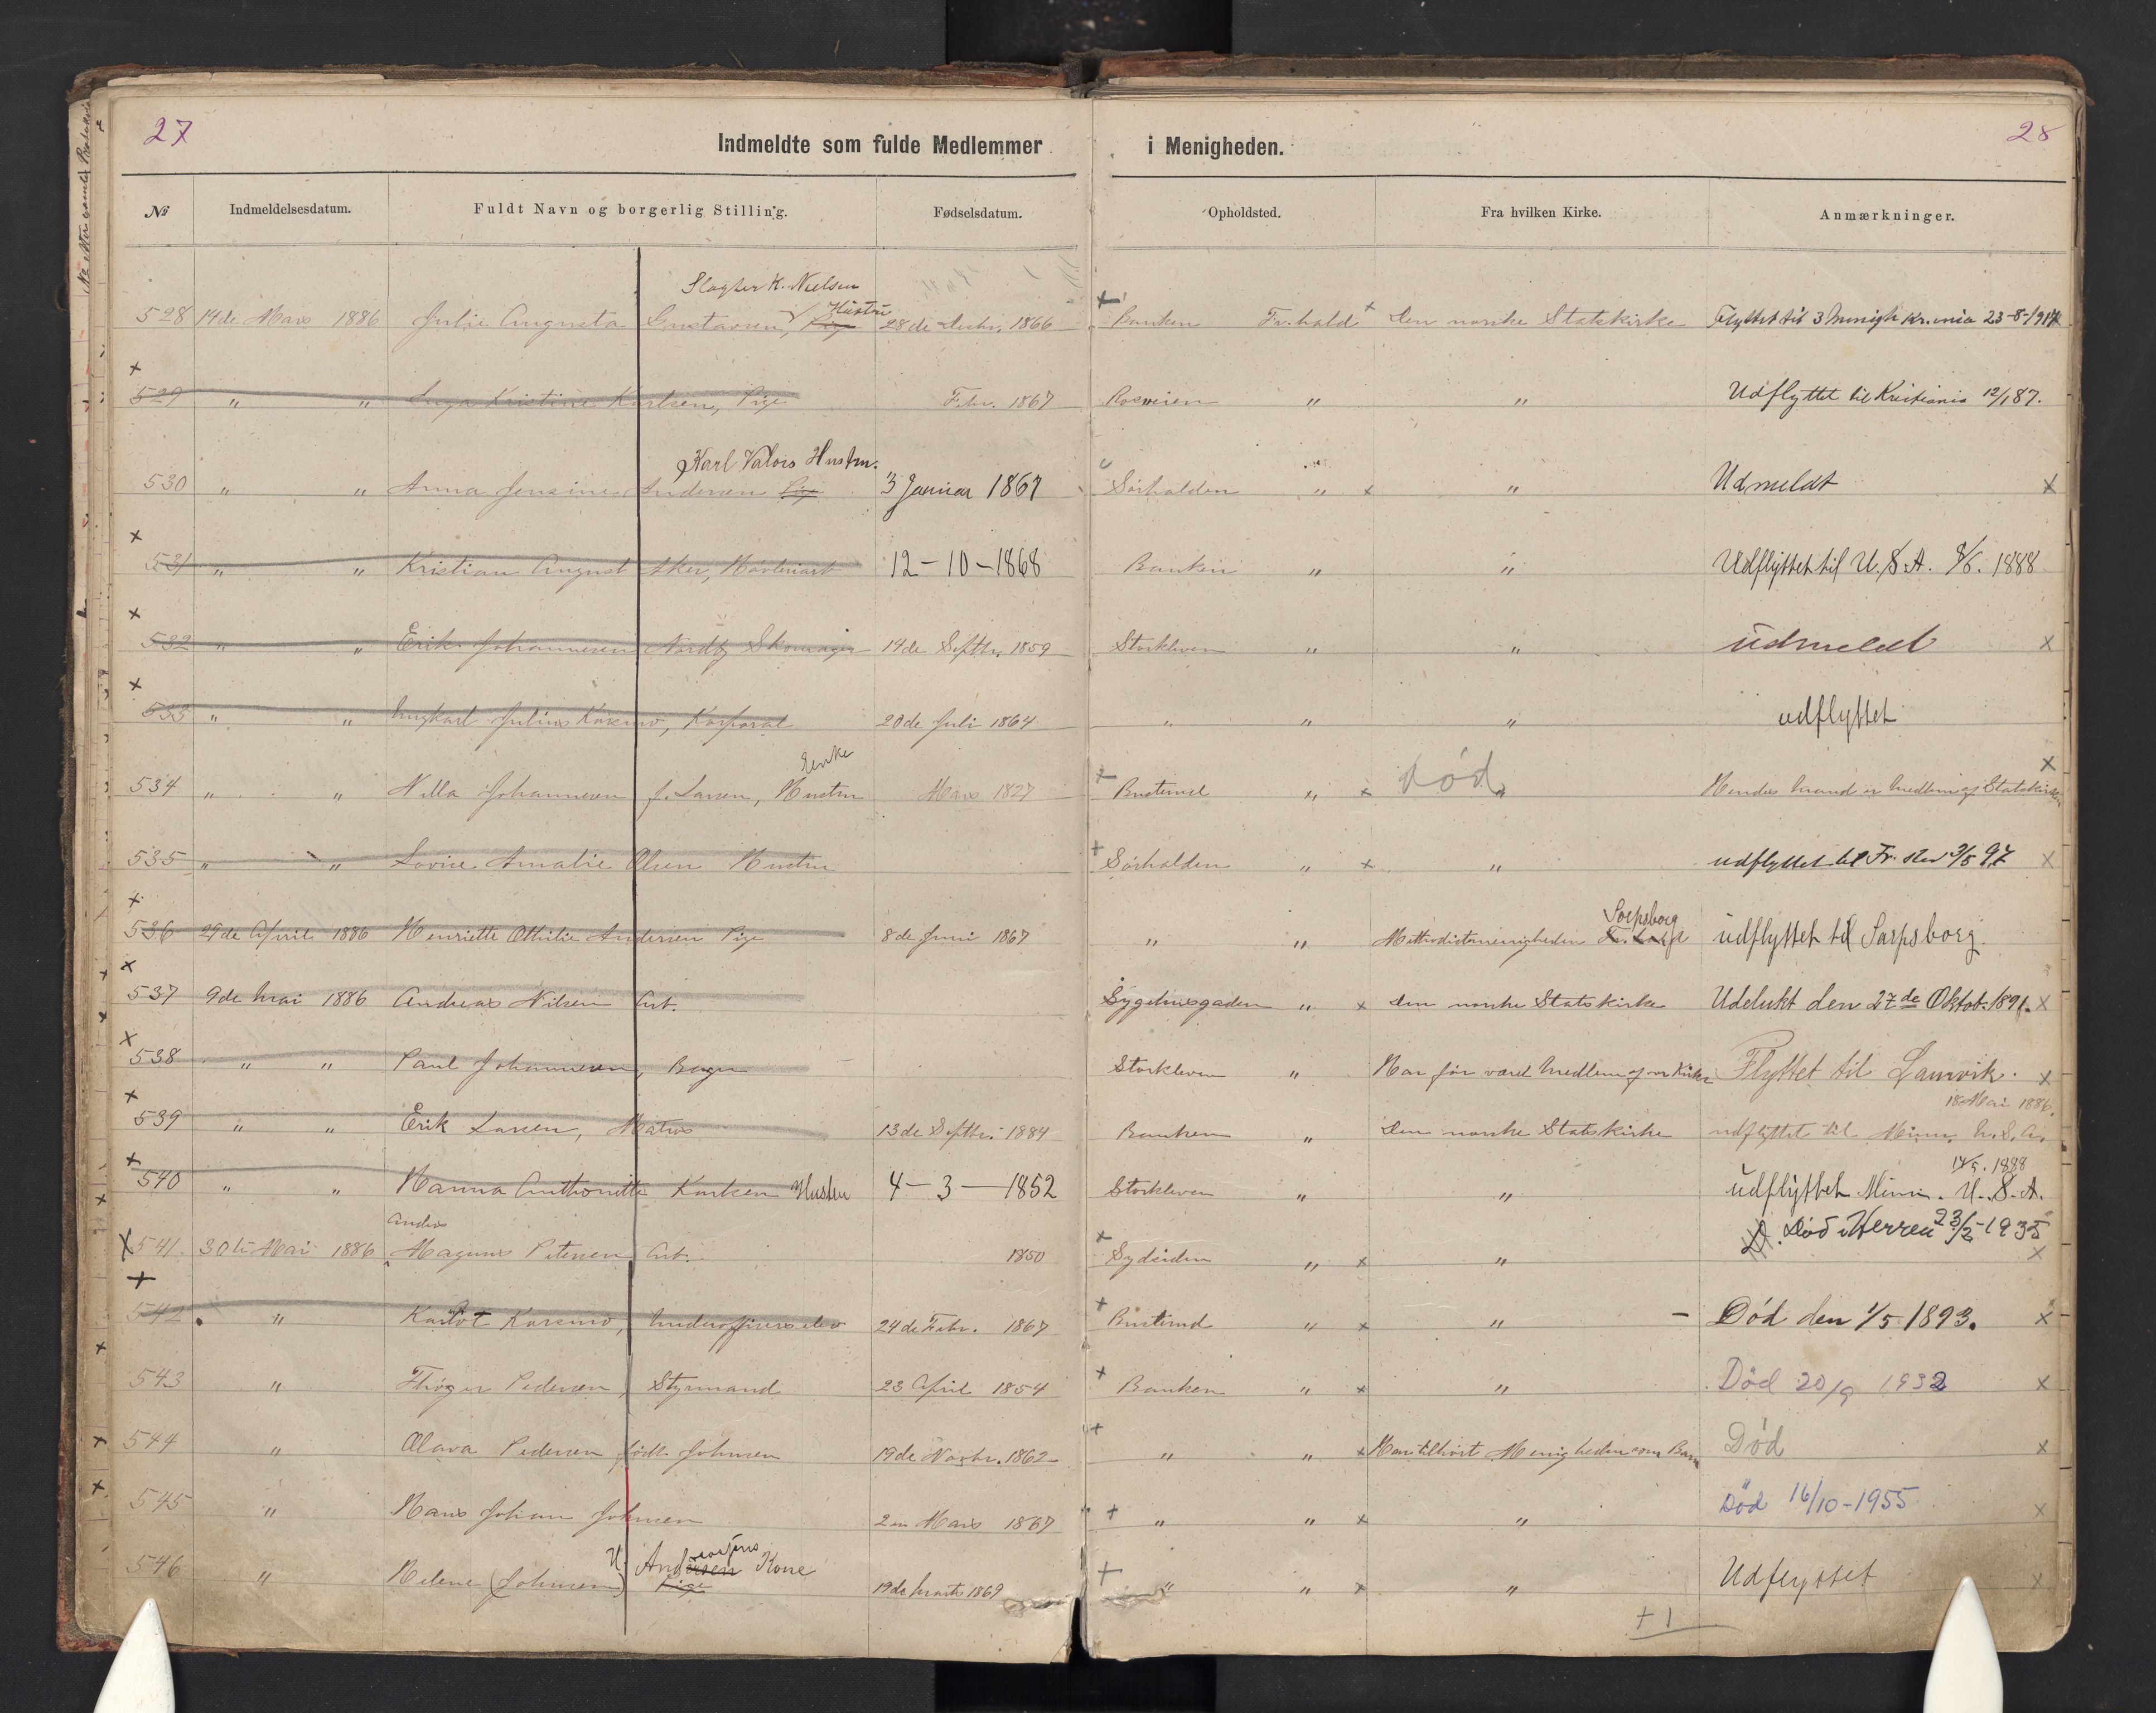 27
Indmeldte som fulde Medlemmer i Menigheden.
28
No Indmeldelsesdatum. Fuldt Navn og borgerlig Stilling. Fødselsdatum. Opholdsted. Fra hvilken Kirke. Anmærkninger.
Slagter K. Nielsen
Hustru
528 14de Mars 1886 Julie Augusta Gustavsen, Pige 28de Decbr. 1866 Banken Fr.hald Den norske Statskirke Flyttet til 3 Menigh Kr.ania 23-8-1914
529 " " Inga Kristine Karlsen, Pige Febr. 1867 " " Udflyttet til Kristiania 12/1 87.
Karl Valors Hustru.
530 " " Anna Jensine Andersen Pige 3 Januar 1867 Sørhalden " " Udmeldt
531 " " Kristian August 12-10-1868 Banken " " Udflyttet til U.S.A. 8/6. 1888
532 " " Erik Johannesen Nordby Skomager 14de Septbr. 1859 Storkleven " " udmeldt
533 " " Julius Korsmo, Korporal 20de Juli 1864 " " " udflyttet
Enke
534 " " Nilla Johannesen f. Larsen, Hustru Mars 1827 Busterud " død " Hendes mand er medlem af Statskirken
535 " " Lovise Amalie Olsen Hustru Sørhalden " " udflyttet til Fr. stad 3/5 97
Sarpsborg
536 29de April 1886 Henriette Othilie Andersen Pige 8de Juni 1867 " " Methodistmenigheden udflyttet til Sarpsborg.
537 9de Mai 1886 Andreas Nilsen Arb. Sygehusgaden " Den norske Statskirke Udelukt den 27de Oktob. 1891.
538 " " Paul Johannesen, Bager Storkleven " Har før været Medlem af vor Kirke Flyttet til Laurvik.
18 Mai 1886.
539 " " Erik Larsen, Matros 13de Septbr. 1884 Banken " Den norske Statskirke udflyttet til Minn. U.S.A.
17/5. 1888
540 " " Hanna Anthonette Karlsen Hustru 4-3-1852 Storkleven " " udflyttet Minn. U.S.A.
Anders
Død i Herren 23/2-1935
541 30te Mai 1886 Magnus Petersen Arb. 1850 Sydsiden " "
542 " Korsmo, Underofficerselev 24de Febr. 1867 Busterud " " - Død den 1/5 1893.
543 " Thøger Pedersen, Styrmand 23 April 1854 Banken " " Død 20/9 1932
544 " Olava Pedersen født Johnsen 19de Novbr. 1862 " " Har tilhørt Menigheden som Barn Død
545 " Hans Johan Johnsen 2en Mars 1867 " " " Død 16/10-1955
546 " Helene (Johnsen) Andersen Kone Pige 19de Marts 1869 " " " Udflyttet
+1